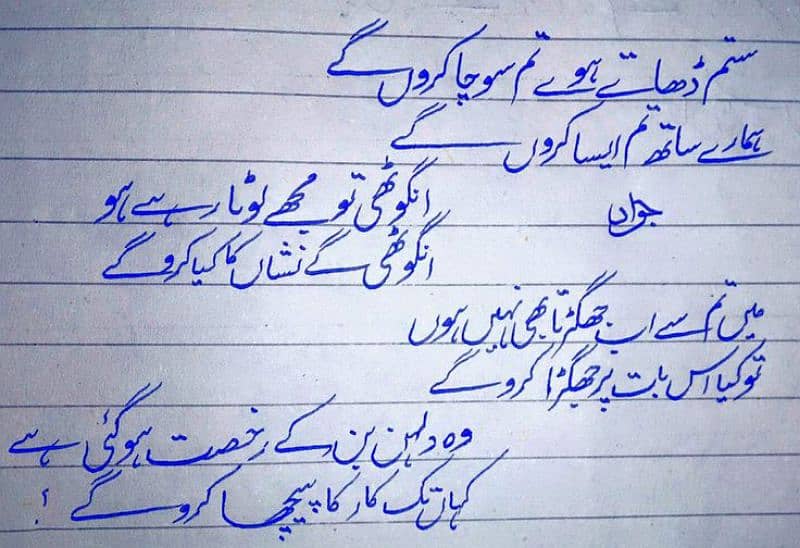 ستم ڈھاتے ہوے تم سوچا کروں گے
ہمارے ساتھ تم ایسا کروں گے
انگوٹھی تو مجھے لوٹا رہے ہو
انگوٹھی گے نشاں کا کیا کروگے
میں تم سے اب جھگڑتا بھی نہیں ہوں
تو کیا اس بات پر جھگڑا کروگے
وہ دلہن بن کے رخصت ہوگئی ہے
کہاں تک کار کا پیچھا کروگے !